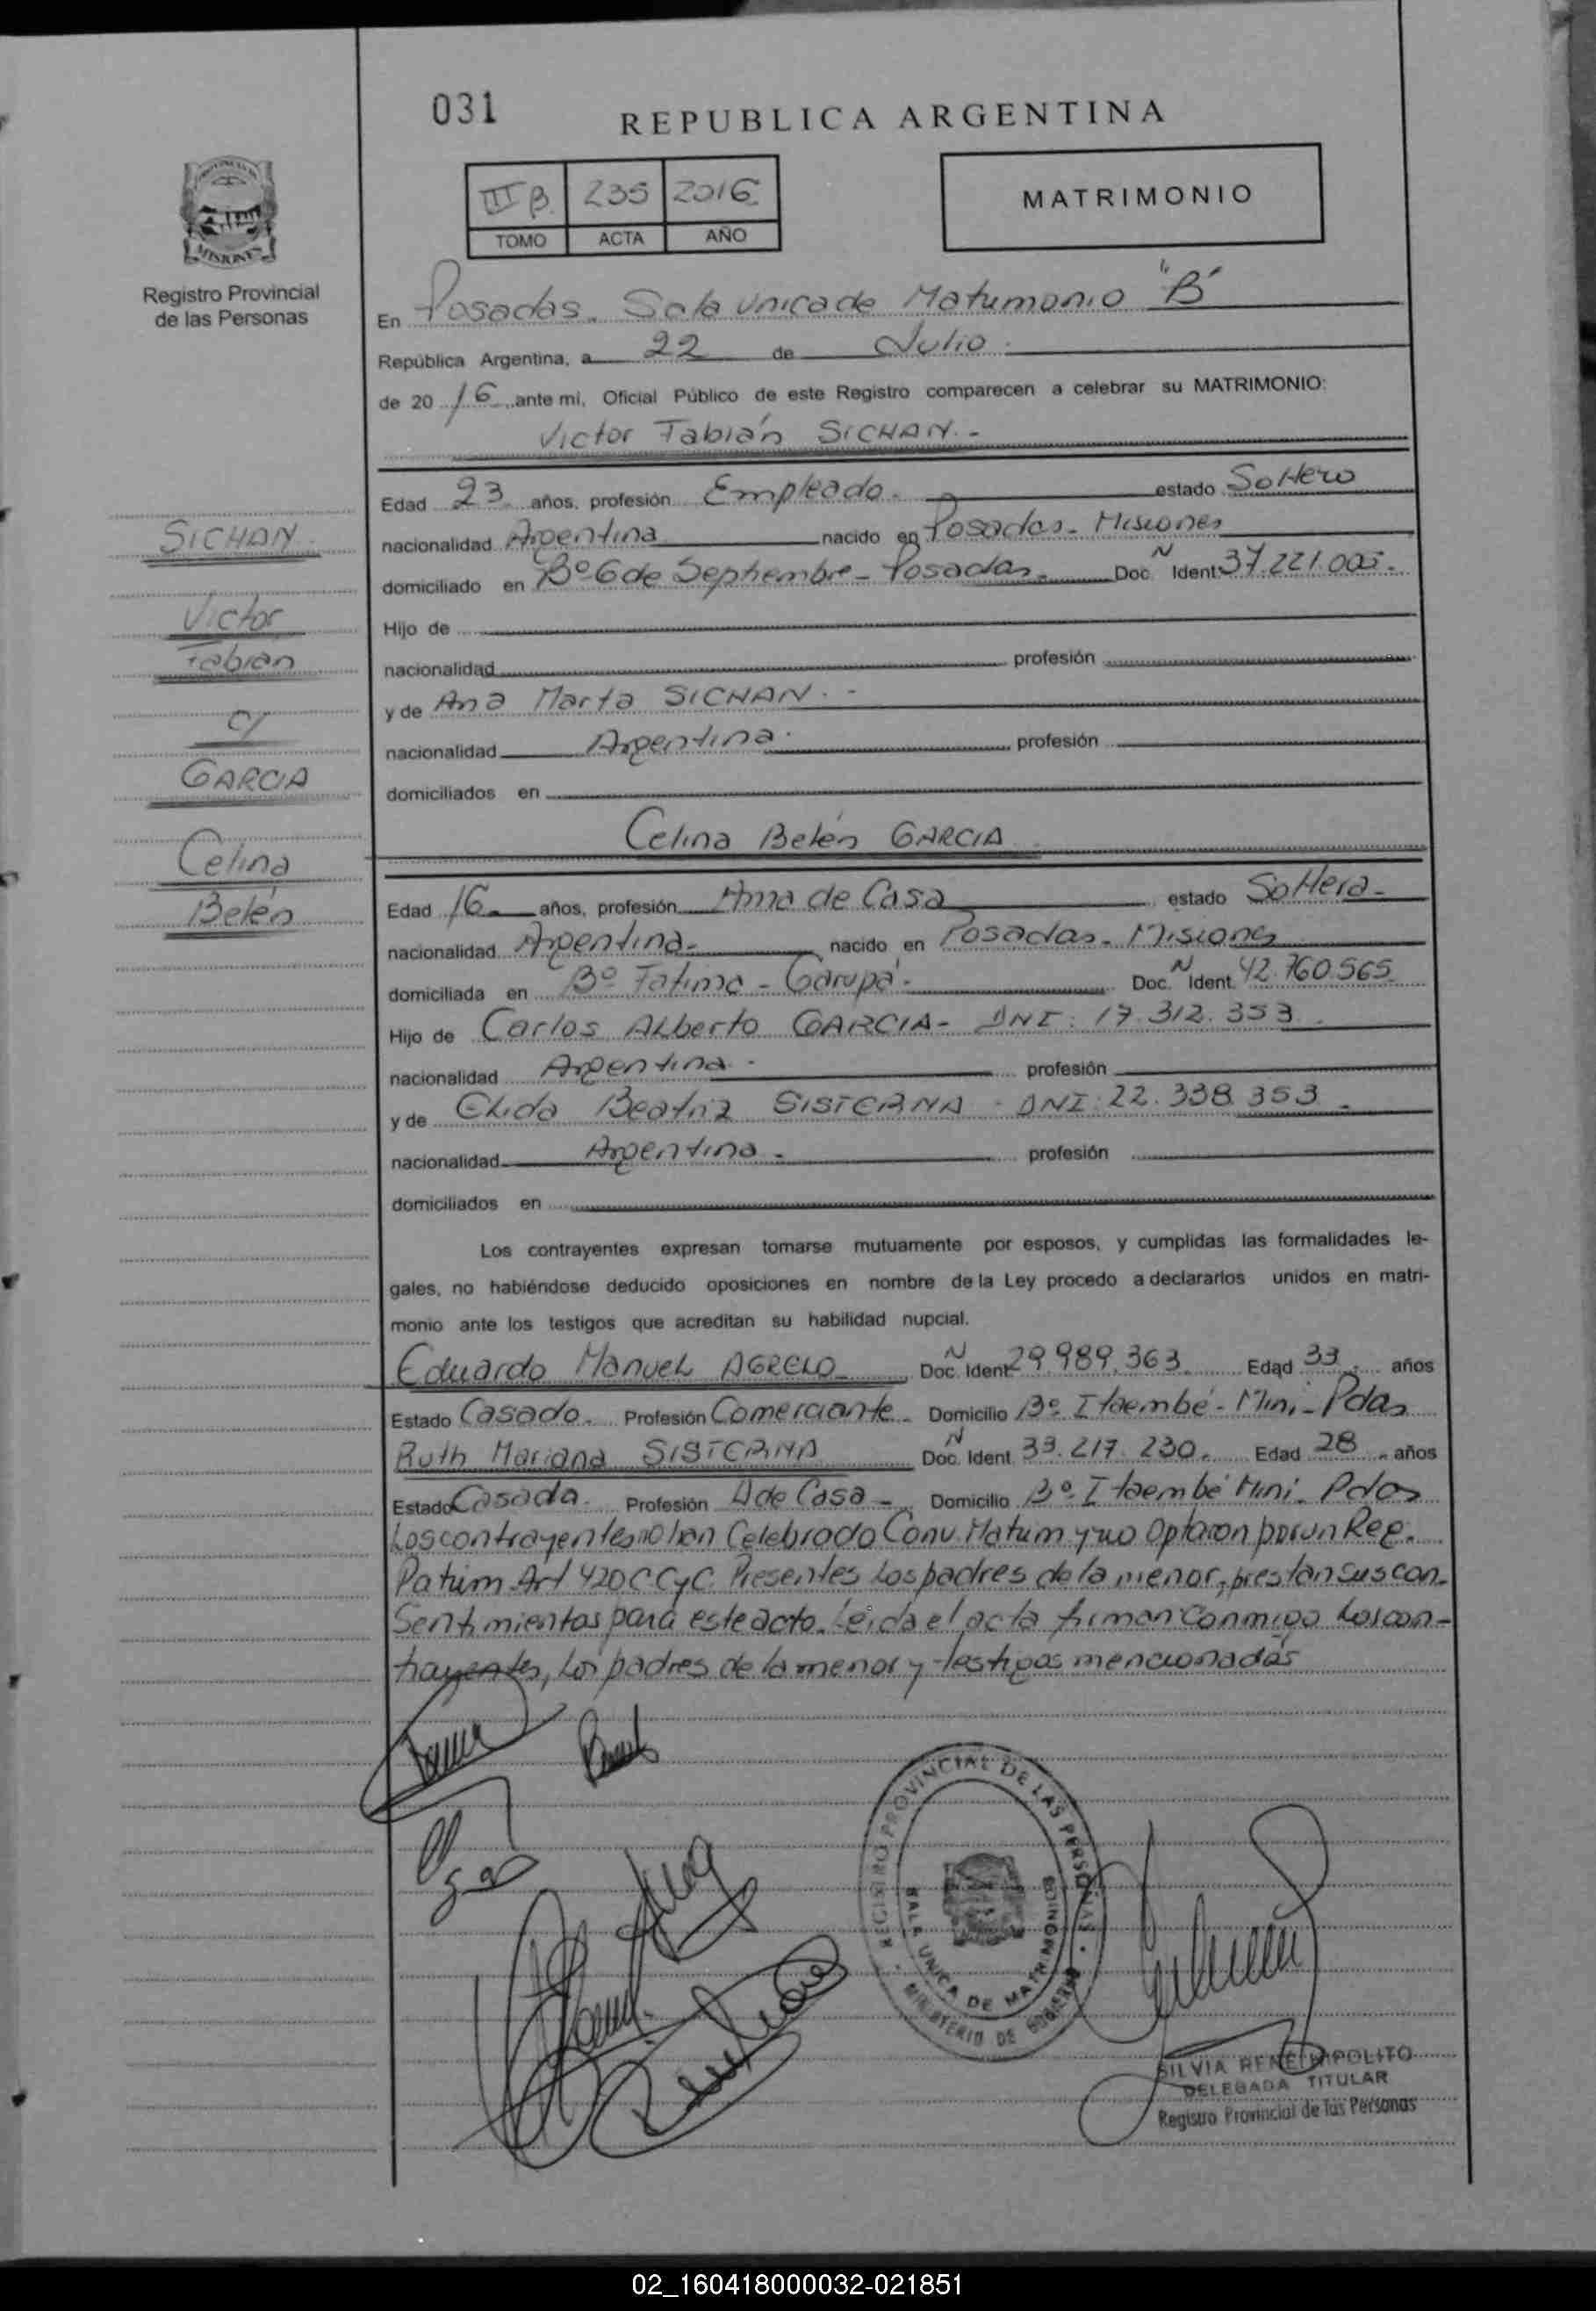 031
REPUBLICA ARGENTINA
III B 235 2016
TOMO ACTA AÑO
MATRIMONIO
MISIONES
Registro Provincial
de las Personas
En Posadas. Sala Unica de Matrimonio "B"
República Argentina, a 22 de Julio.
de 20 16 ante mi, Oficial Público de este Registro comparecen a celebrar su MATRIMONIO:
Victor Fabián SICHAN.-
Edad 23 años, profesión Empleado. estado Soltero
nacionalidad Argentina nacido en Posadas - Misiones
domiciliado en Bº 6 de Septiembre - Posadas. Doc. N Ident 37.221.005.
Hijo de
nacionalidad profesión
y de Ana Marta SICHAN.-
nacionalidad Argentina. profesión
domiciliados en
SICHAN
Victor
Fabián
c/
GARCIA
Celina
Belén
Celina Belén GARCIA
Edad 16 años, profesión Ama de Casa estado Soltera-
nacionalidad Argentina- nacido en Posadas - Misiones
domiciliada en Bº Fatima - Garupá. Doc. N Ident. 42.760.565
Hijo de Carlos Alberto GARCIA - DNI: 17.312.353.
nacionalidad Argentina. profesión
y de Elida Beatriz SISTERNA - DNI: 22.338.353.
nacionalidad Argentina. profesión
domiciliados en
Los contrayentes expresan tomarse mutuamente por esposos, y cumplidas las formalidades le-
gales, no habiéndose deducido oposiciones en nombre de la Ley procedo a declararlos unidos en matri-
monio ante los testigos que acreditan su habilidad nupcial.
Eduardo Manuel AGRELO Doc. N Ident 29.989.363 Edad 33 años
Estado Casado. Profesión Comerciante. Domicilio Bº Itaembé - Mini - Pdas
Ruth Mariana SISTERNA Doc. N Ident. 33.217.230. Edad 28 años
Estado Casada. Profesión A de Casa - Domicilio Bº Itaembé Mini - Pdas
Los contrayentes no han Celebrado Conv. Matrim y no Optaron por un Reg.
Patrim Art 420 CCyC. Presentes Los padres de la menor, prestan sus con-
sentimientos para este acto. Leida el acta firman conmigo Los con-
trayentes, Los padres de la menor y testigos mencionados
REGISTRO PROVINCIAL DE LAS PERSONAS
SALA UNICA DE MATRIMONIOS
MINISTERIO DE GOBIERNO
SILVIA RENE HIPOLITO
DELEGADA TITULAR
Registro Provincial de las Personas
02_160418000032-021851